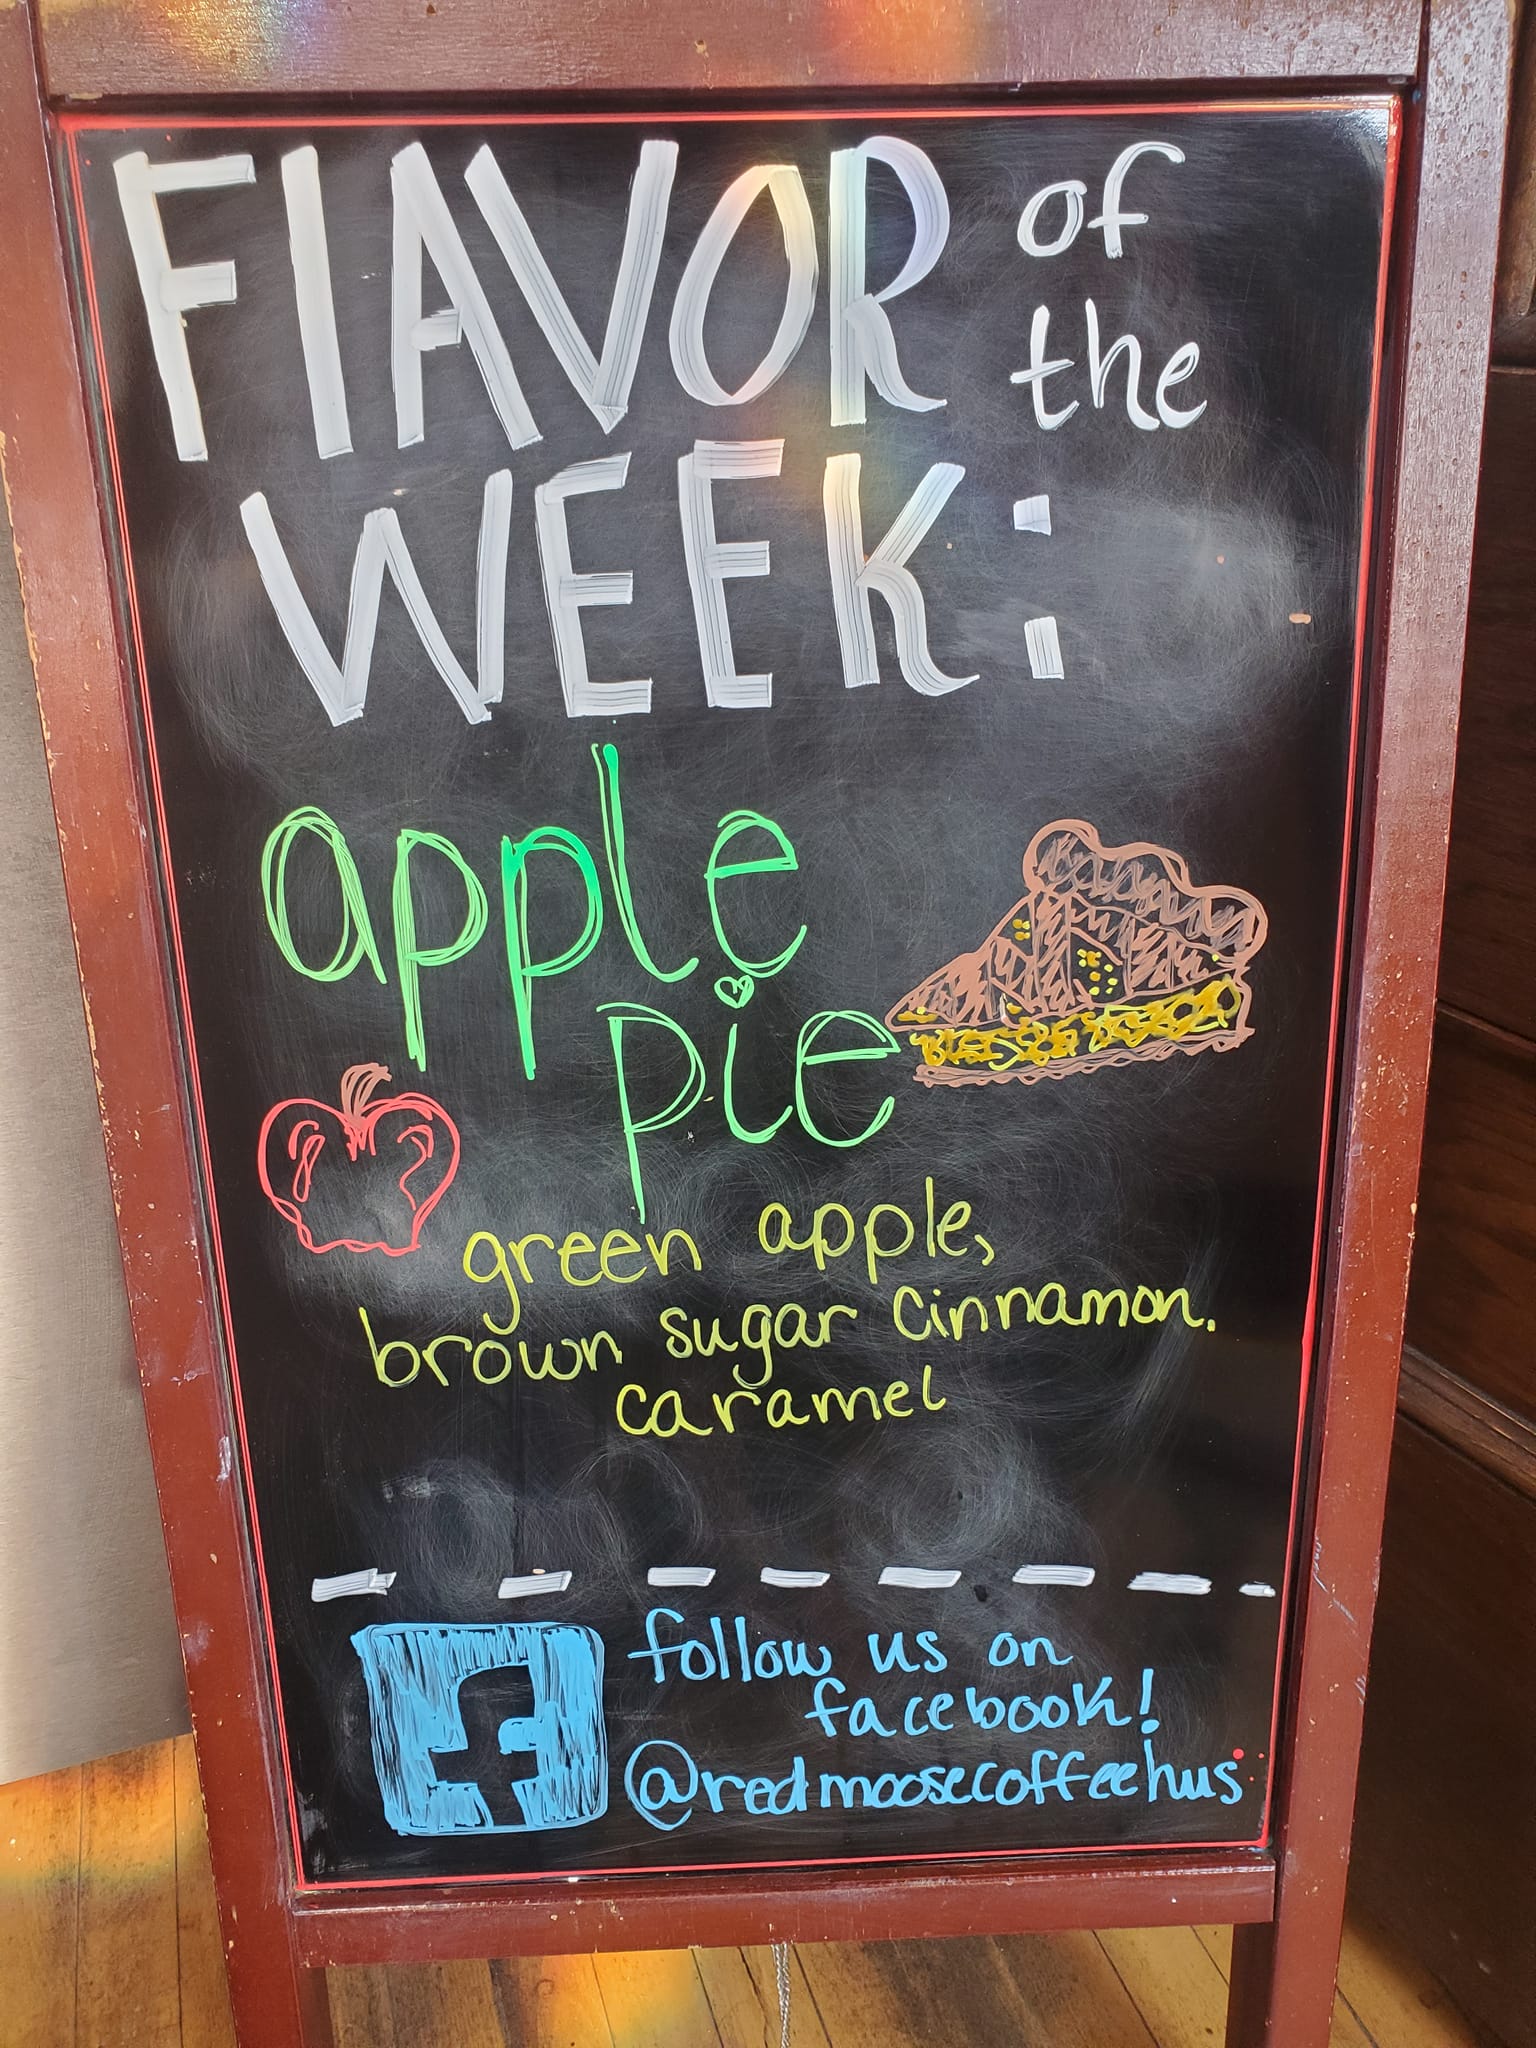 FlAVOR of
the
WEEK:
apple
pie
green apple,
brown sugar cinnamon.
caramel
follow us on
facebook!
@redmoosecoffeehus